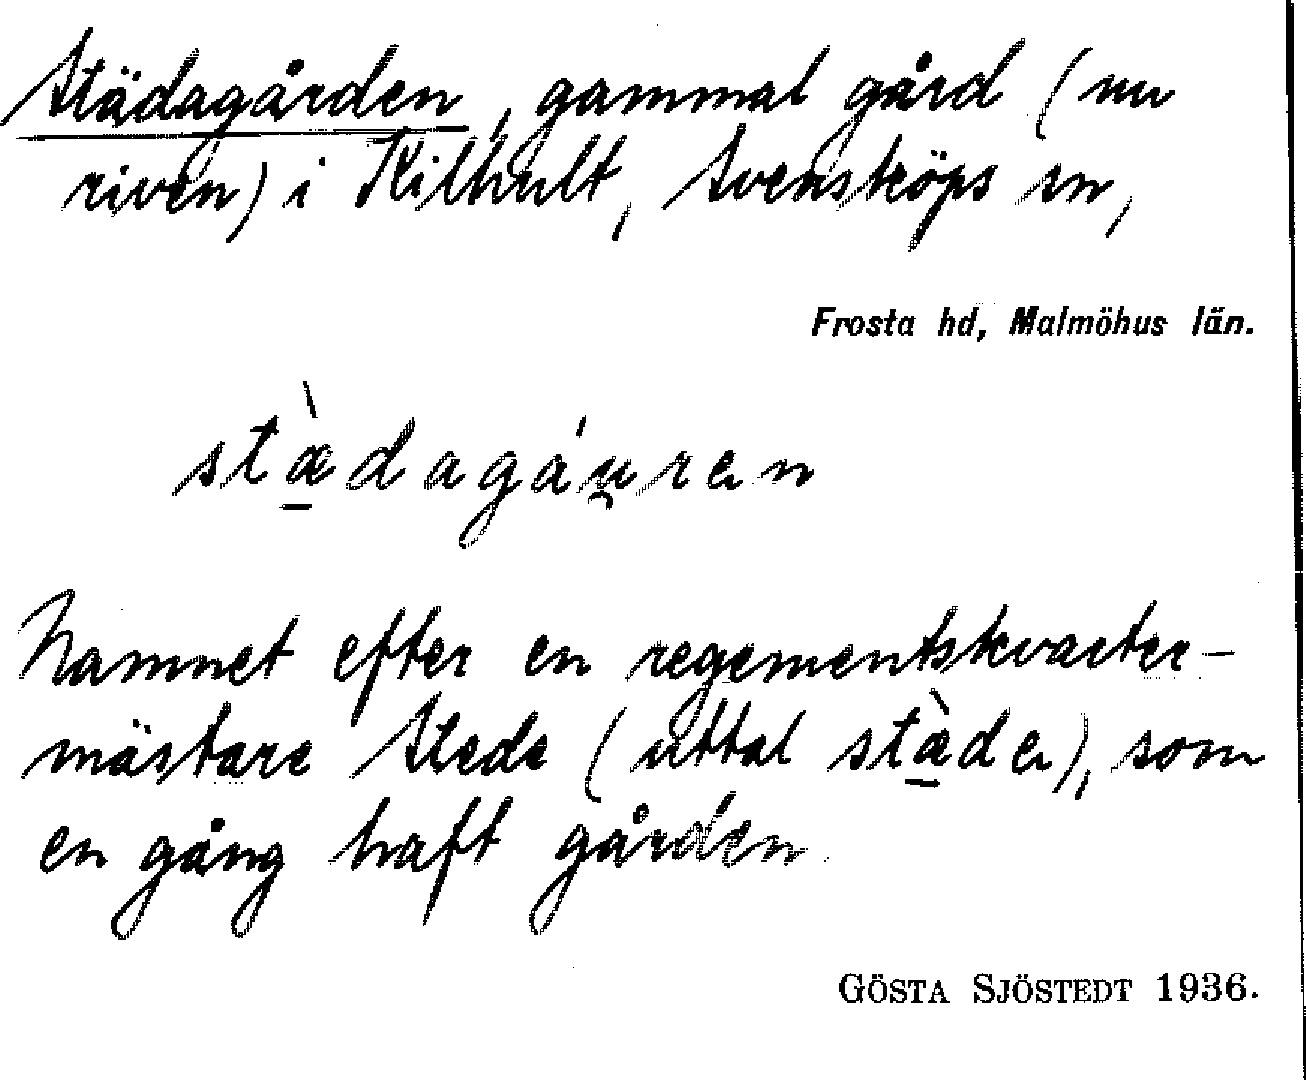 Städagården, gammal gård (nu
riven) i Kilhult, Svensköps sn,
Frosta hd, Malmöhus län.
stæ̠̀dagáu̯rən
Namnet efter en regementskvarter-
mästare Stede (uttal stæ̠̀də), som
en gång haft gården.
GÖSTA SJÖSTEDT 1936.